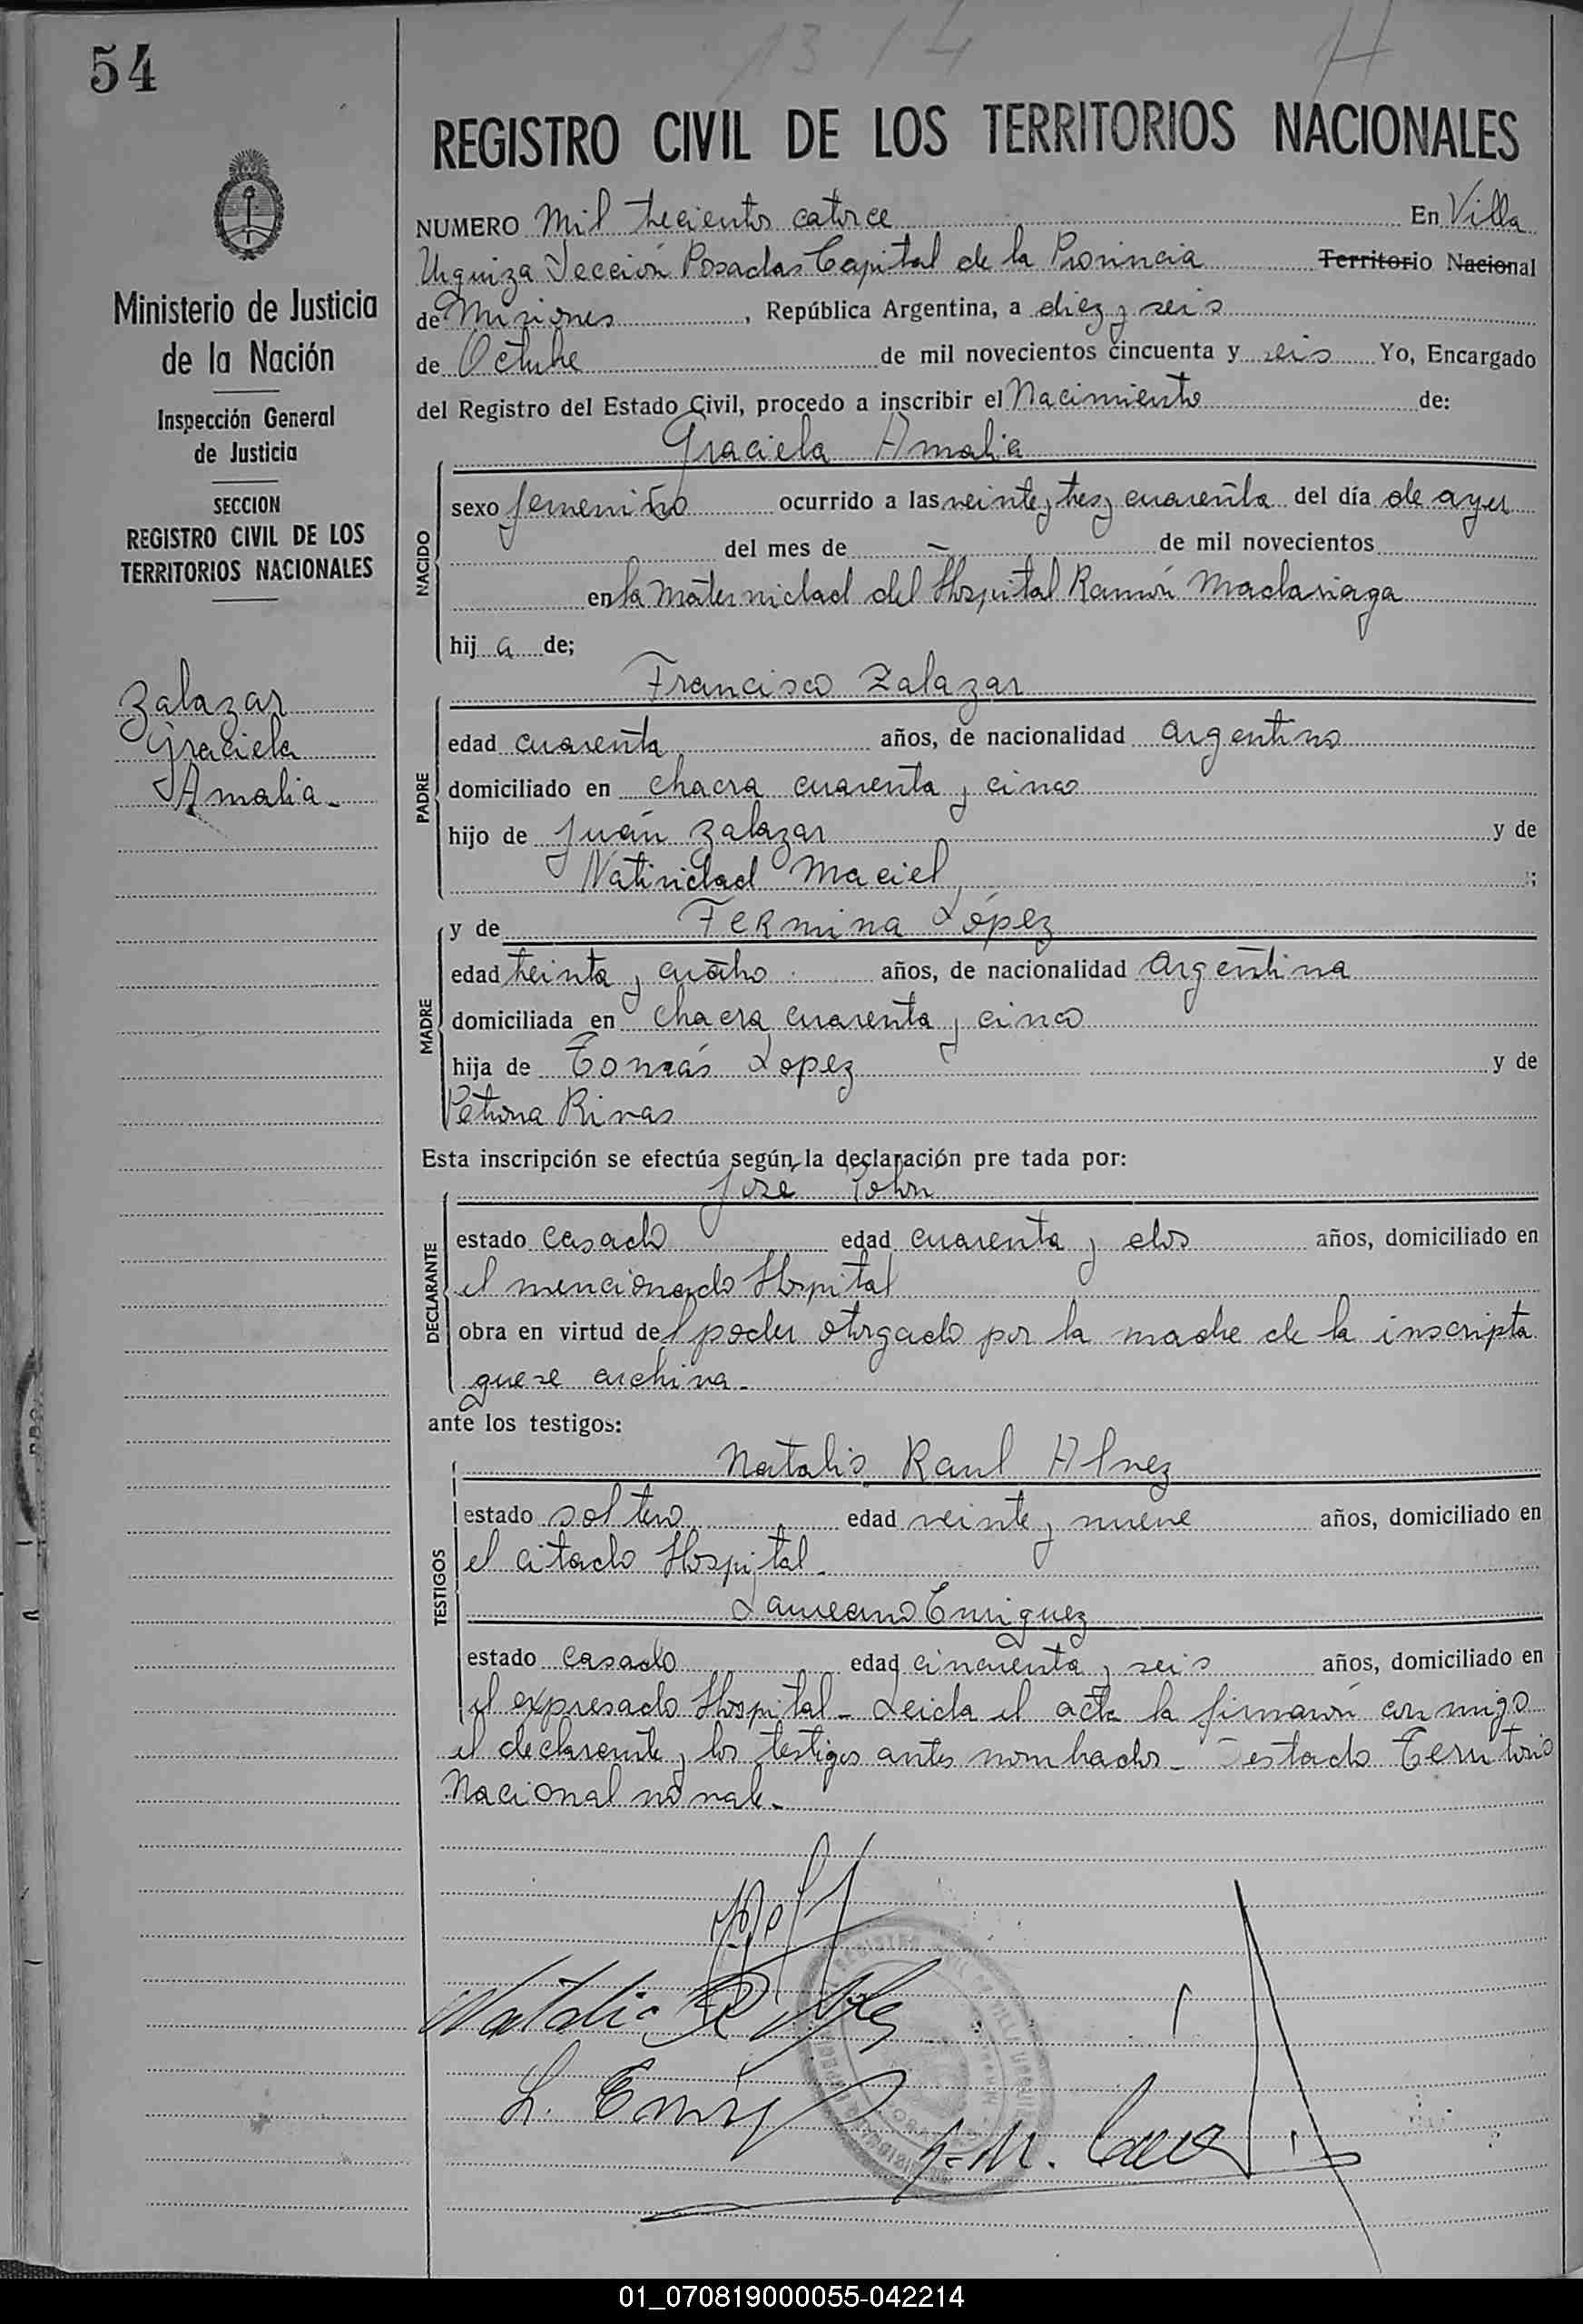 1314
H
54
REGISTRO CIVIL DE LOS TERRITORIOS NACIONALES
NUMERO Mil trecientos catorce En Villa
Urquiza Sección Posadas Capital de la Provincia Territorio Nacional
de Misiones, República Argentina, a diez y seis
de Octubre de mil novecientos cincuenta y seis Yo, Encargado
del Registro del Estado Civil, procedo a inscribir el Nacimiento de:
Graciela Amalia
NACIDO
sexo femenino ocurrido a las veinte y tres y cuarenta del día de ayer
del mes de — de mil novecientos
en la Maternidad del Hospital Ramón Madariaga
hij a de;
Francisco Zalazar
PADRE
edad cuarenta años, de nacionalidad Argentino
domiciliado en chacra cuarenta y cinco
hijo de Juan Zalazar y de
Natividad Maciel ;
y de Fermina López
MADRE
edad treinta y cuatro años, de nacionalidad Argentina
domiciliada en chacra cuarenta y cinco
hija de Tomás Lopez y de
Petrona Rivas
Esta inscripción se efectúa según la declaración pre tada por:
José
DECLARANTE
estado casado edad cuarenta y dos años, domiciliado en
el mencionado Hospital
obra en virtud del poder otorgado por la madre de la inscripta
que se archiva.
ante los testigos:
Natalio Raul Alvez
TESTIGOS
estado soltero edad veinte y nueve años, domiciliado en
el citado Hospital.
Laureano Enriquez
estado casado edad cincuenta y seis años, domiciliado en
el expresado Hospital - Leida el acta la firmarón conmigo
el declarante y los testigos antes nombrados - Testado Territorio
Nacional no vale.
Natalio R Alvez
L. Enriq
Ministerio de Justicia
de la Nación
Inspección General
de Justicia
SECCION
REGISTRO CIVIL DE LOS
TERRITORIOS NACIONALES
Zalazar
Graciela
Amalia -
01_070819000055-042214